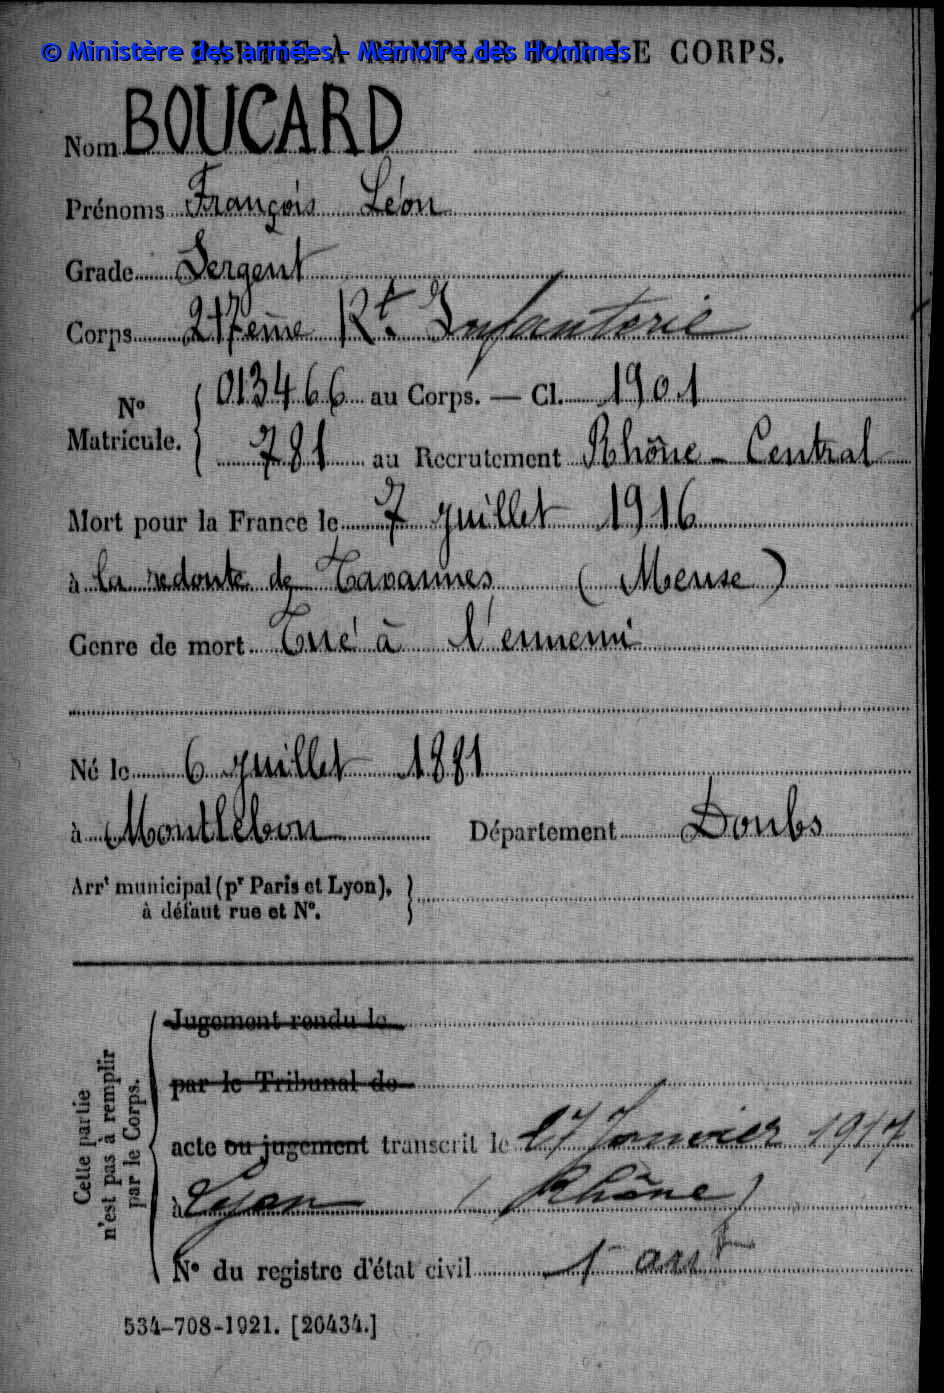 © Ministère des armées - Mémoire des Hommes
PARTIE À REMPLIR PAR LE CORPS.
Nom BOUCARD
Prénoms François Léon
Grade Sergent
Corps 217ème Rt Infanterie
No Matricule. 013466 au Corps. — Cl. 1901
781 au Recrutement Rhône - Central
Mort pour la France le 7 juillet 1916
à la redoute de Tavannes (Meuse)
Genre de mort Tué à l'ennemi
Né le 6 juillet 1881
à Montlebon Département Doubs
Arrt municipal (pr Paris et Lyon),
à défaut rue et No.
Cette partie
n'est pas à remplir
par le Corps.
Jugement rendu le
par le Tribunal de
acte ou jugement transcrit le 27 Janvier 1917
à Lyon (Rhône)
No du registre d'état civil 1 arrt
534-708-1921. [26434.]